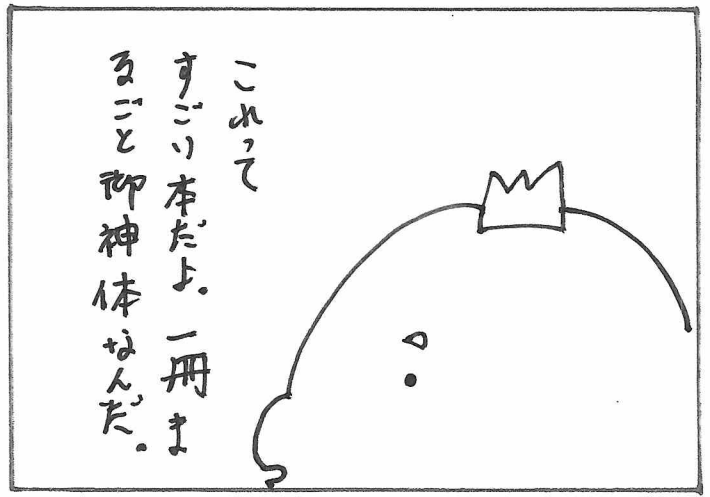 これって
すごい本だよ。一冊ま
るごと御神体なんだ。